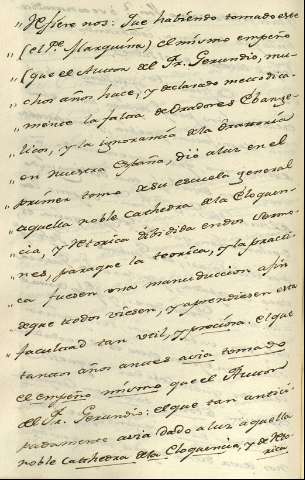 „ Refiere nos: Que habiendo tomado este
„ (el Pe. Marquina) el mismo empeño
„ (que el Autor del Fr. Gerundio, mu-
„ chos años hace, y declarado metodica-
„ mente la falta de Oradores Ebange-
„ licos, y la ignorancia de la Oratoria
„ en nuestra España, dió a luz en el
„ primer tomo de su escuela general
„ aquella noble Cathedra de la Eloquen-
„ cia, y Retorica dibidida en dos Sermo-
„ nes, para que la teorica, y la practi-
„ ca fuesen una manuduccion afin
„ de que todos viesen, y aprendiesen esta
„ facultad tan util, y preciosa. el que
tantos años antes avia tomado
el empeño mismo que el Autor
del Fr. Gerundio: el que tan antici-
padamente avia dado a luz aquella
noble Cathedra de la Eloquencia, y Reto-
rica,